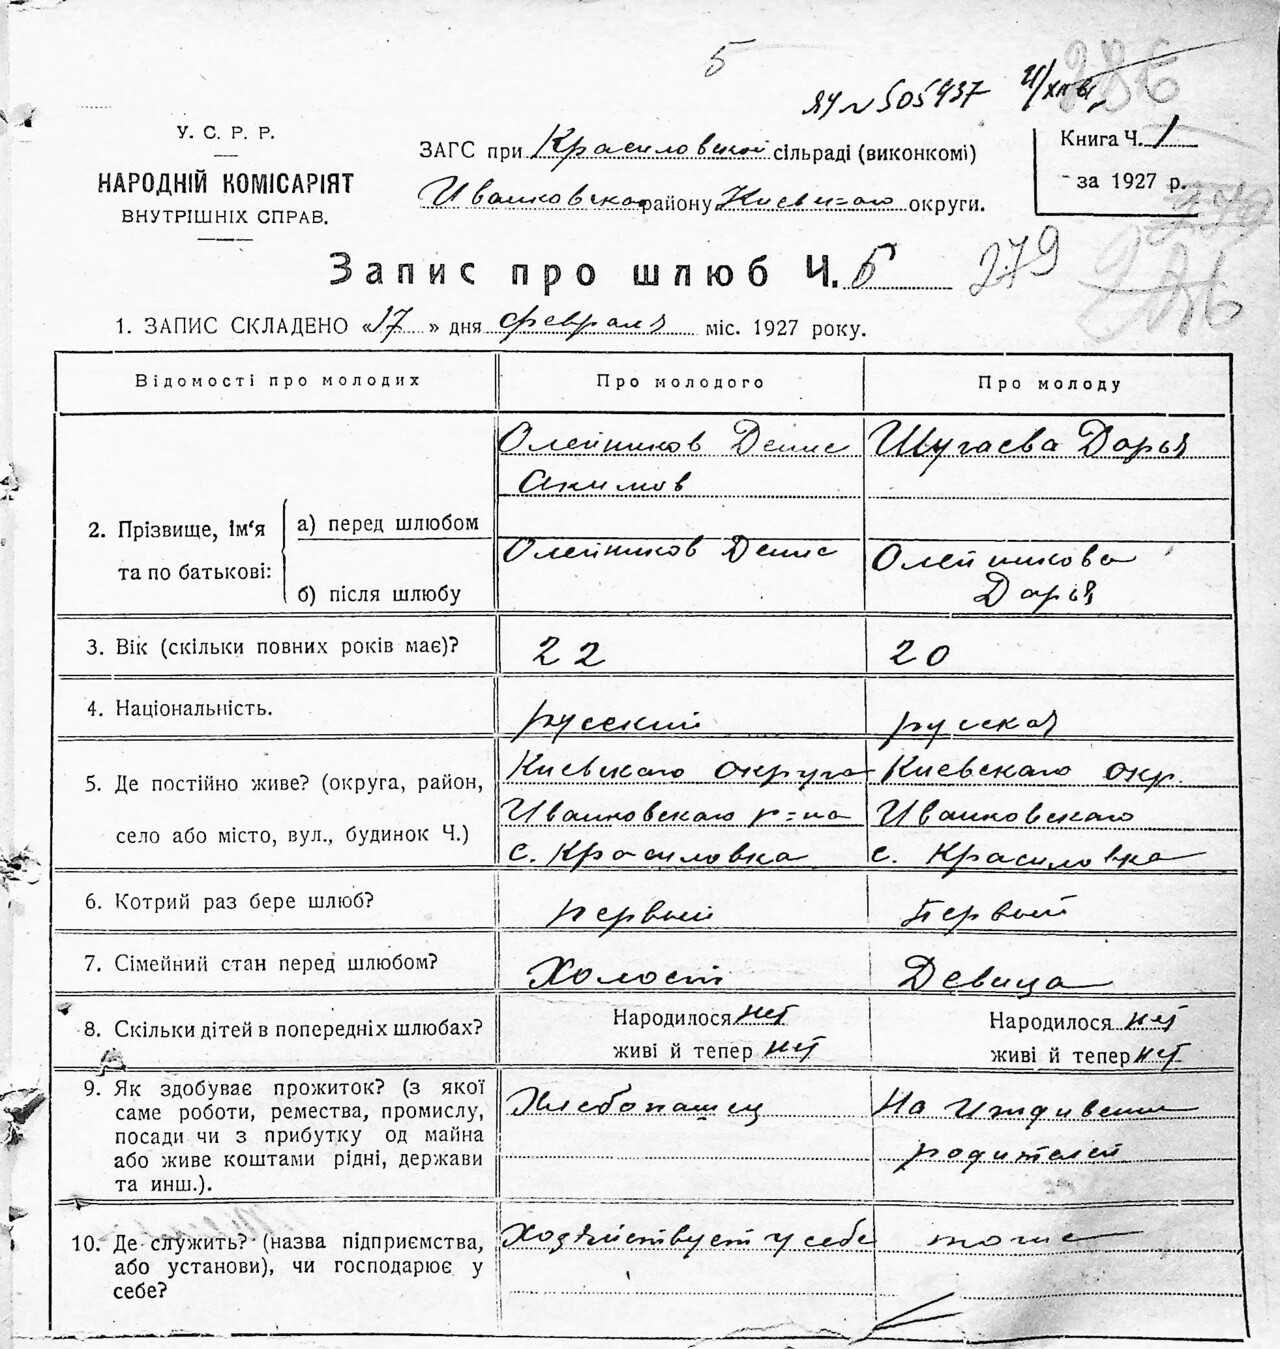 5
ЯУ № 505937
286
У. С. Р. Р.
НАРОДНІЙ КОМІСАРІЯТ
ВНУТРІШНІХ СПРАВ.
ЗАГС при Красиловской сільраді (виконкомі)
Иванковского району Киевского округи.
Книга Ч. 1
за 1927 р.
279
286
Запис про шлюб Ч. 5
279
1. ЗАПИС СКЛАДЕНО «17» дня февраля міс. 1927 року.
Відомості про молодих Про молодого Про молоду
2. Прізвище, ім'я та по батькові:
а) перед шлюбом
Олейников Денис
Акимов
Шугаева Дарья
б) після шлюбу
Олейников Денис
Олейникова
Дарья
3. Вік (скільки повних років має)? 22 20
4. Національність. русский русская
5. Де постійно живе? (округа, район,
село або місто, вул., будинок Ч.)
Киевскаго округа
Иванковскаго р=на
с. Красиловка
Киевскаго окр.
Иванковскаго
с. Красиловка
6. Котрий раз бере шлюб? первый Первый
7. Сімейний стан перед шлюбом? Холост Девица
8. Скільки дітей в попередніх шлюбах?
Народилося нет
живі й тепер нет
Народилося нет
живі й тепер нет
9. Як здобуває прожиток? (з якої
саме роботи, ремества, промислу,
посади чи з прибутку од майна
або живе коштами рідні, держави
та инш.).
Хлебопашец
На иждивении
родителей
10. Де служить? (назва підприємства,
або установи), чи господарює у
себе?
Хозяйствует у себе
тоже